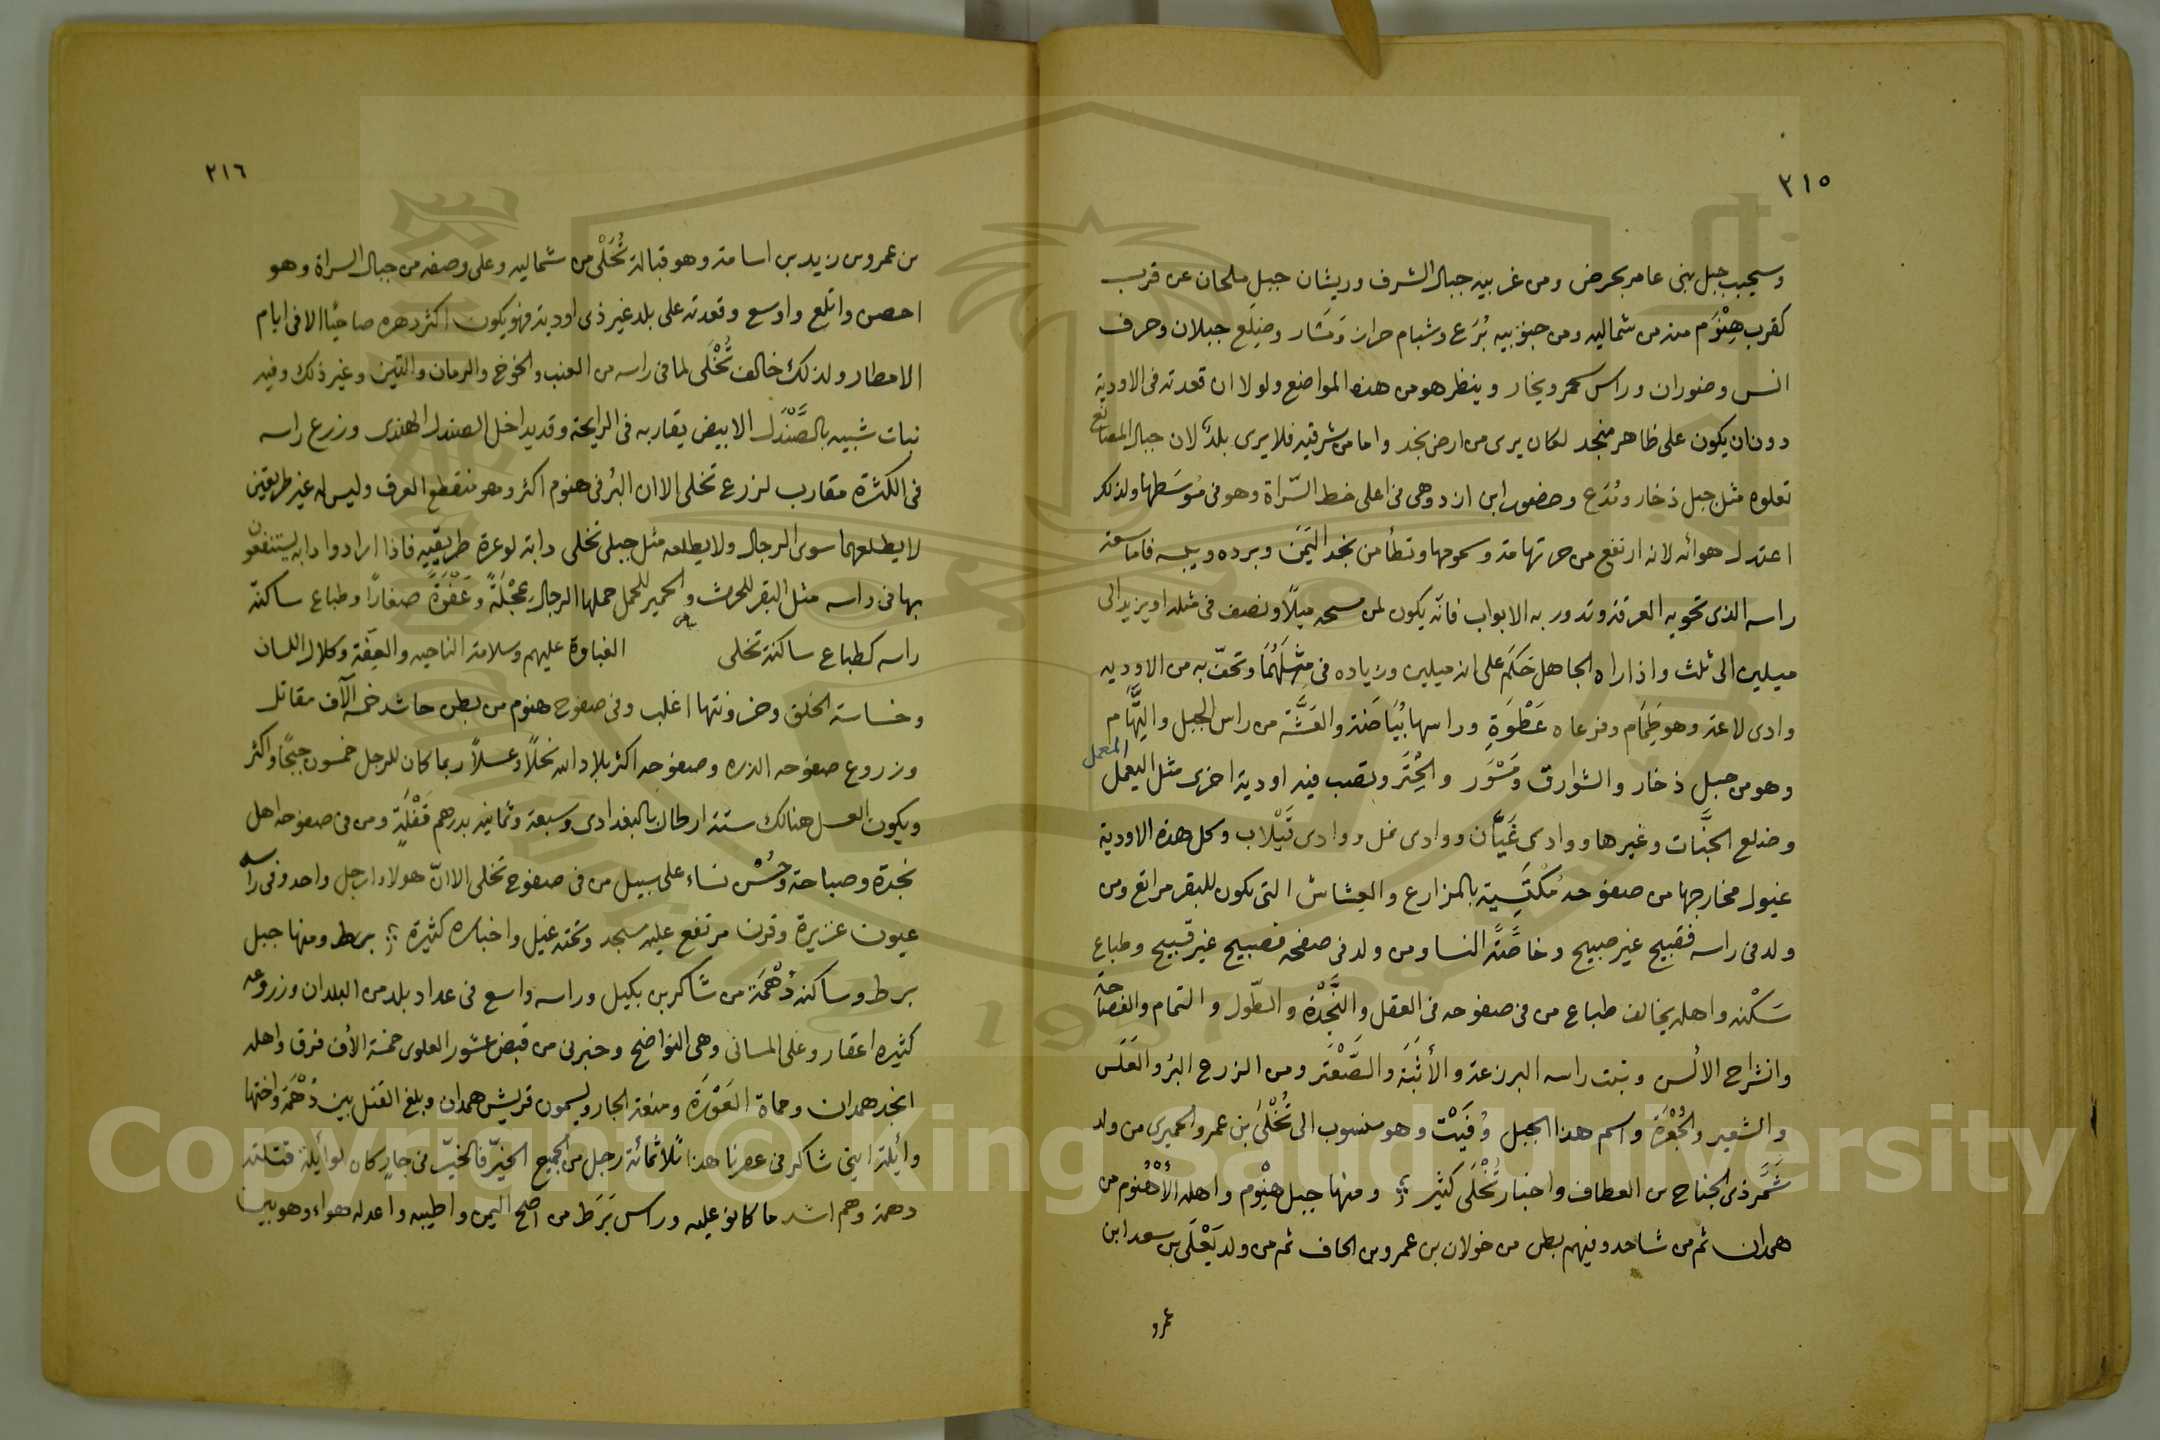 ٣١٥
وسيحبب جبل بنى عامر بحرض ومن غربيه جبال الشرف وريشان جبل ملحان عن قرب
كقرب هِنْوَم منه من شماليه ومن جنوبيه بُرَع وشبام حراز وَمَسَار وضِلَع جبلان وحرف
انس وضوران وراس سحمر ويخار وينظر هو من هذه المواضع ولولا ان قعدته فى الاودية
دون ان يكون على ظاهر منجد لكان يرى من ارض نجد واما من شرقيه فلا يرى بلد لان جبال المصانع
تعلوه مثل جبل ذخار وتُدَع وحضور ابن ازد وهى فى اعلى خط السّراة وهو فى مُوسَطها ولذلك
اعتدل هوائه لانه ارتفع من حر تهامة وسمومها وتطأمن نجد اليَمَن وبرده ويبسه فاما سعة
راسه الذى تحويه العرقة وتدور به الابواب فانّه يكون لمن مسحه ميلًا ونصف فى مثله او يزيد الى
ميلين الى ثلث واذا راه الجاهل حَكَم على انه ميلين وزياده فى مثلهما وتحفّ به من الاوديه
وادى لاعة وهو طِمَام وفرعاه عَظْوَةِ وراسها بُيَاضَة والعَشَّة من راس الجبل واليَّهَام
وهو من جبل ذخار والشوارق وَمَسْوَر والحُتَر وتصب فيه اودية اخرى مثل اليعمل
المعمل
وضلع الجنَّات وغيرها ووادى غَيَّان ووادى نمل ووادى تَيْلاب وكل هذه الاودية
غيول مخارجها من صفوحه مُكْتَسِية بالمزارع والعِشاش التى يكون للبقر مراتع ومن
ولد فى راسه فقبيح غير صبيح وخاصَّةً النسا ومن ولد فى صفحه فصبيح غير قبيح وطباع
سَكْنه واهله يخالف طباع من فى صفوحه فى العقل والنَّجْدة والطّول والتمام والفصاحة
وانشراح الالُسن وينبت راسه البرزعة والأُثبَة والصَّعْتَر ومن الزرع البرُ والعَلَس
والشعير والجُعْرَة واسم هذا الجبل وُقَيْت وهو منسوب الى تُخْلَى بن عمرو الحميرى من ولد
شَمَّر ذى الجناح بن العطاف واخبار تُخْلَى كثير ۞ ومنها جبل هِنْوم واهله الأُهْنُوم من
همدان ثم من شاحد وفيهم بطن من خولان بن عمرو بن الحاف ثم من ولد يَعْلَى بن سعد ابن
عمرو
٣١٦
بن عمرو بن زيد بن اسامة وهو قبالة تُخْلَى من شماليه وعلى وصفه من جبال السراة وهو
احصن واتلع واوسع وقعدته على بلد غير ذى اودية فهو يكون اكثر دهره صاحيًا الا فى ايام
الامطار ولذلك خالف تُخْلَى لما فى راسه من العنب والخوخ والرمان والتين وغير ذلك وفيه
نبات شبيه بالصَّنْدَل الابيض يقاربه فى الرايحة وقد يداخل الصندل الهندى وزرع راسه
فى الكثرة مقارب لزرع تخلى الا ان البُر فى هنوم اكثر وهو منقطع العرف وليس له غير طريقين
لا يطلعهما سوى الرجال ولا يطلعه مثل جبلى تخلى دابة لوعرة طريقيه فاذا ارادوا دابه ينتفعون
بها فى راسه مثل البقر للحرث والحمير للحمل حملها الرجال عِجْلَةً وعَفْوَةً صغارًا وطباع ساكنة
راسه كطباع ساكنة تخلى الغباوة عليهم وسلامة الناحيه والعِفّة وكلال اللسان
وخساسة الخلق وخزونتها اغلب وفى صفوح هنوم من بطن حاشد خمسة آلاف مقاتل
وزروع صفوحه الذره وصفوحه اكثر بلاد الله نحلًا وعسلًا ربما كان للرجل خمسون جبحًا واكثر
ويكون العسل هنالك ستة ارطال بالبغدادى وسبعة وثمانيه بدرهم قَفْلَةٍ ومن فى صفوحه اهل
نجدة وصباحة وحُسْن نساء على سبيل من فى صفوح تخلى الا انّ هولاء ارجل واحد وفى راسه
عيون غزيرة وقرن مرتفع عليه مسجد وتحته غيل واخباره كثيرة ۞ برط ومنها جبل
برط وساكنه دُهْمَة من شاكر بن بكيل وراسه واسع فى عداد بلد من البلدان وزروعه
كثيره اعقار وعلى المسانى وهى النواضح وخبرنى من قبض عشور العلوى خمسة الأف فرق واهله
انجد همدان وحماة العَوْرَة ومنعة الجار ويسمون قريش همدان وبلغ القتل بين دُهْمَة واختها
وأيلة ابنى شاكر فى عصرنا هذا ثلاثمائة رجل من الجميع الخيّر فالخيّر فى جارٍ كان لوأيلة قتلته
دهمة وهم اشد ما كانوا عليه وراس بَرَط من اصح اليمن واطيبه واعدله هواء وهو بين